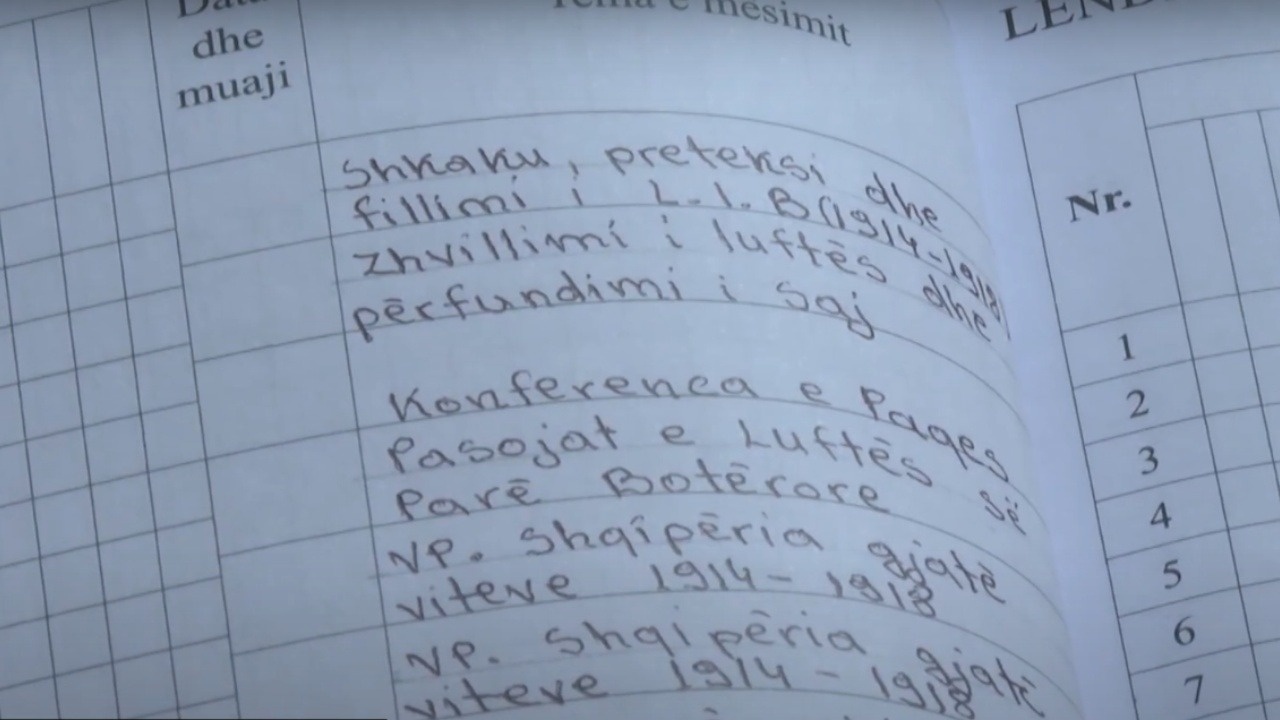 Data
dhe
muaji
Tema e mësimit
Shkaku, preteksi dhe
fillimi i L.I.B (1914-1918
zhvillimi i luftës dhe
përfundimi i saj
Konferenca e Pages
Pasojat e Luftës së
Parë Botërore
NP. Shqipëria gjatë
viteve 1914-1918
NP. Shqipëria gjatë
viteve 1914-1918
LËND
Nr.
1
2
3
4
5
6
7